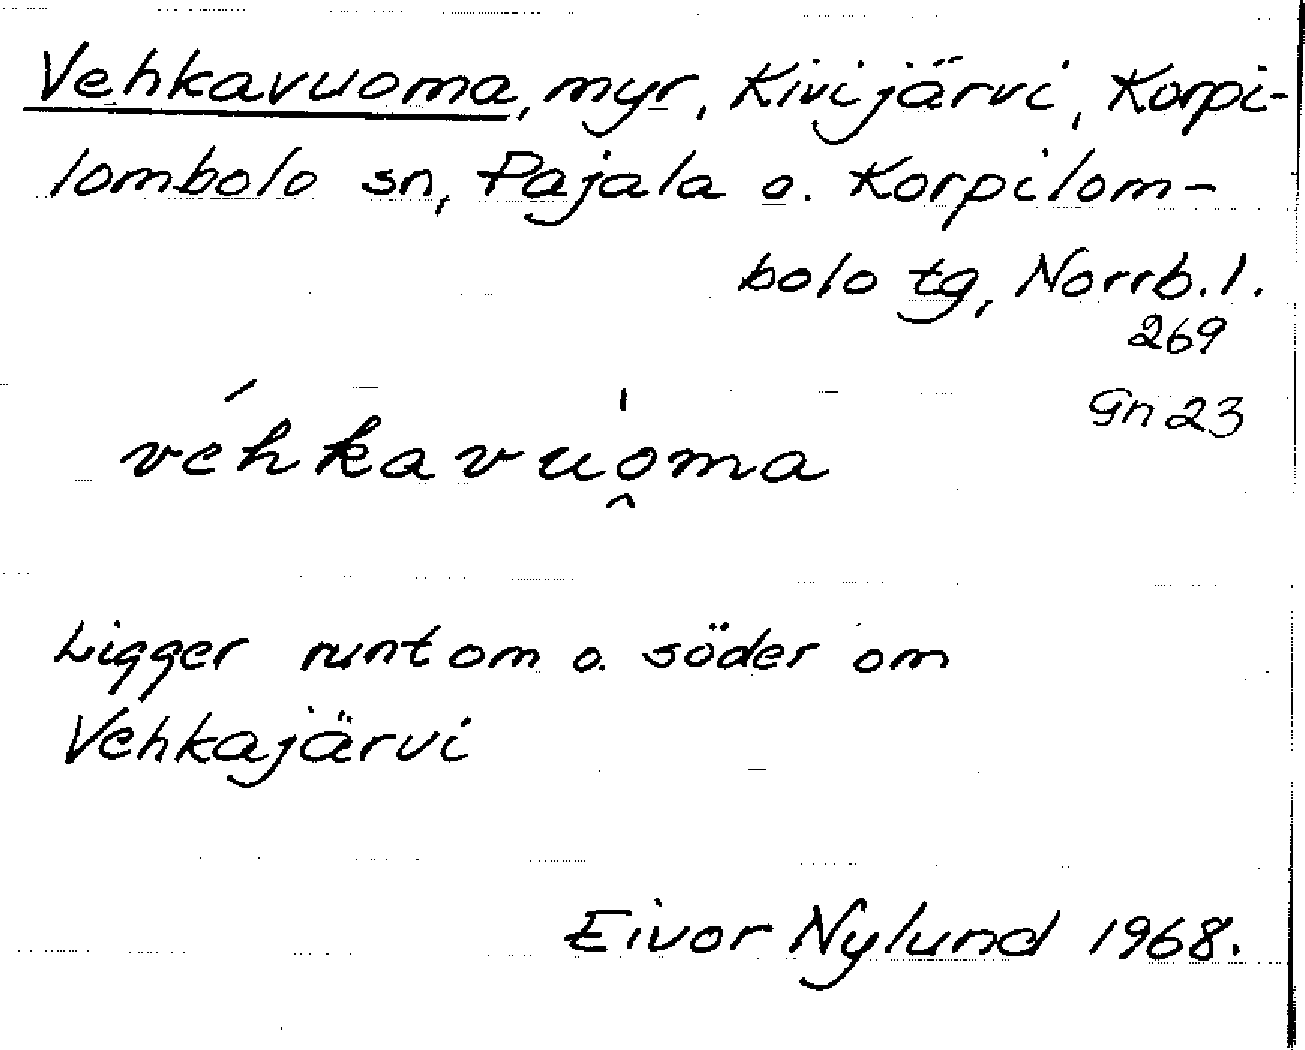 Vehkavuoma, myr, Kivijärvi, Korpi-
lombolo sn, Pajala o. Korpilom-
bolo tg, Norrb. l.
269
Gn 23
véhkavuo̯ma
Ligger runt om o. söder om
Vehkajärvi
Eivor Nylund 1968.